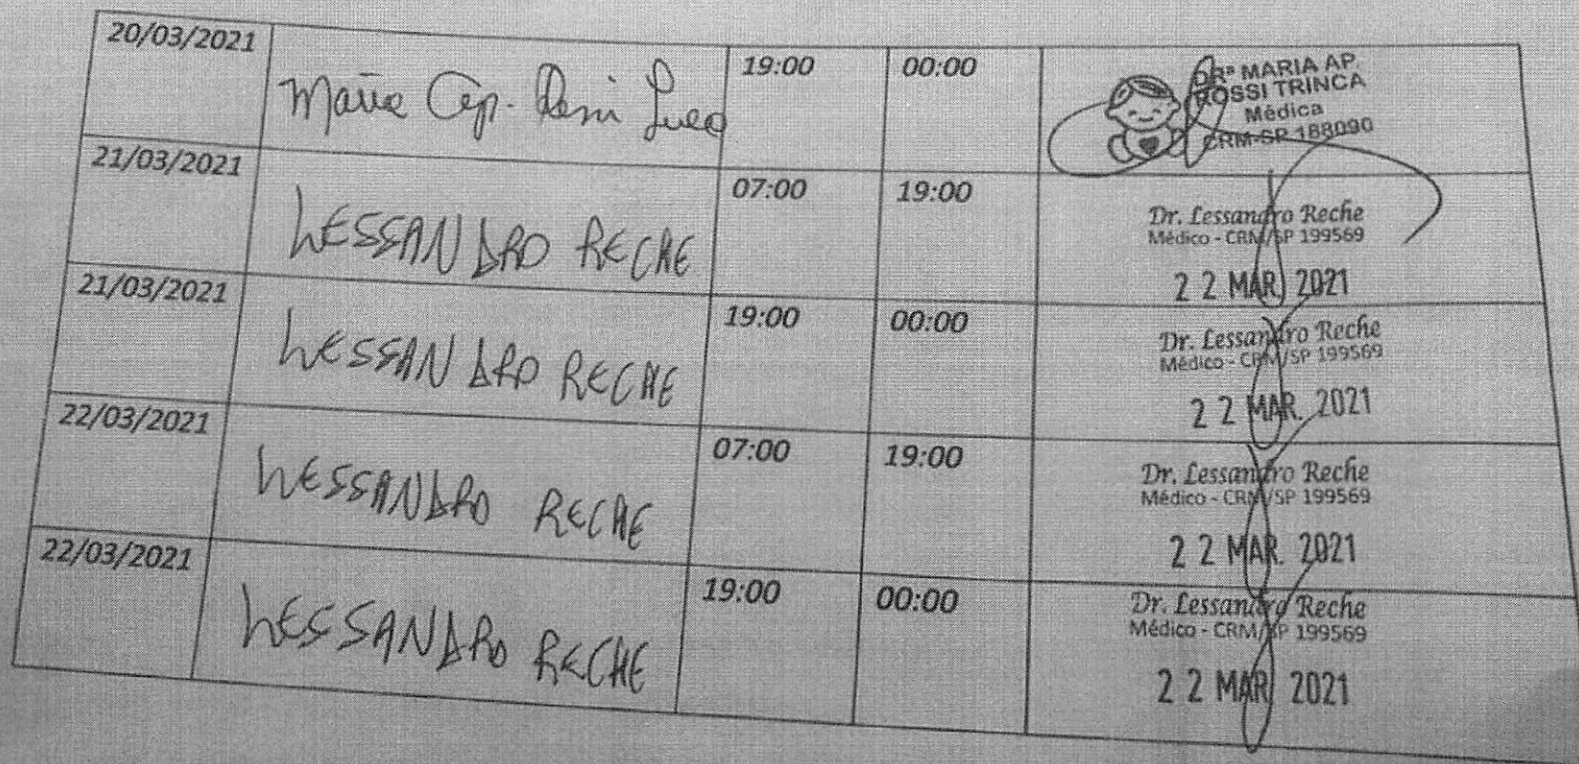 20/03/2021 Maria Ap. Rossi 19:00 00:00 DRª MARIA AP.
ROSSI TRINCA
Médica
CRM-SP 188090
21/03/2021 LESSANDRO RECHE 07:00 19:00 Dr. Lessandro Reche
Médico - CRM/SP 199569
22 MAR 2021
21/03/2021 LESSANDRO RECHE 19:00 00:00 Dr. Lessandro Reche
Médico - CRM/SP 199569
22 MAR. 2021
22/03/2021 LESSANDRO RECHE 07:00 19:00 Dr. Lessandro Reche
Médico - CRM/SP 199569
22 MAR. 2021
22/03/2021 LESSANDRO RECHE 19:00 00:00 Dr. Lessandro Reche
Médico - CRM/SP 199569
22 MAR 2021